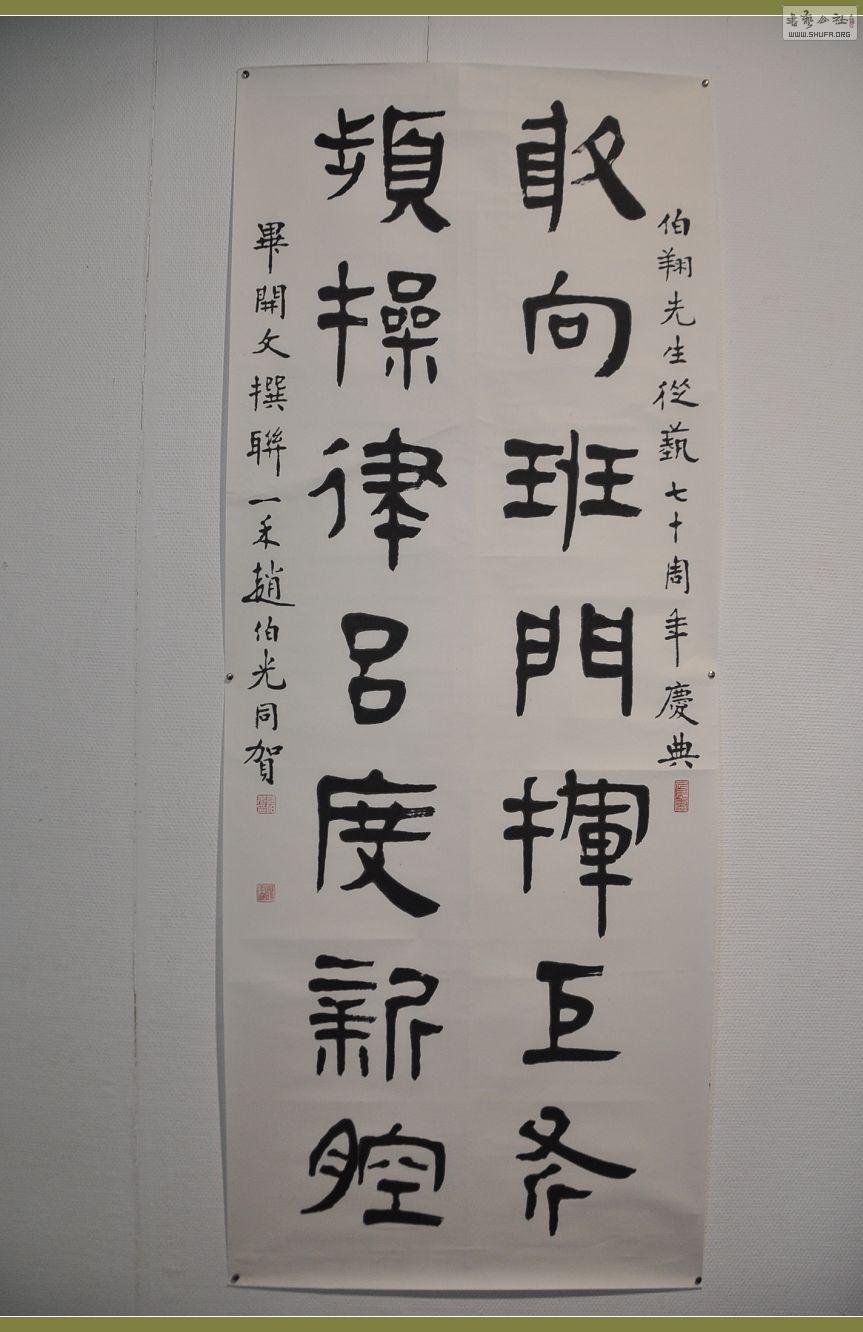 伯翔先生從藝七十周年慶典
敢向班門揮巨斧
頻操律呂度新腔
畢開文撰聯一禾趙伯光同賀
WWW.SHUFA.ORG